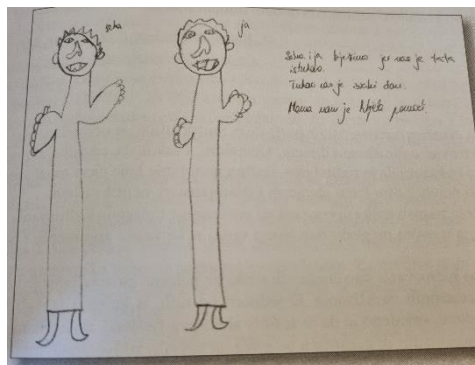 seka
ja
Seka i ja bježimo jer nas je tata
istukao.
Tukao nas je svaki dan.
Mama nam je htjela pomoć.